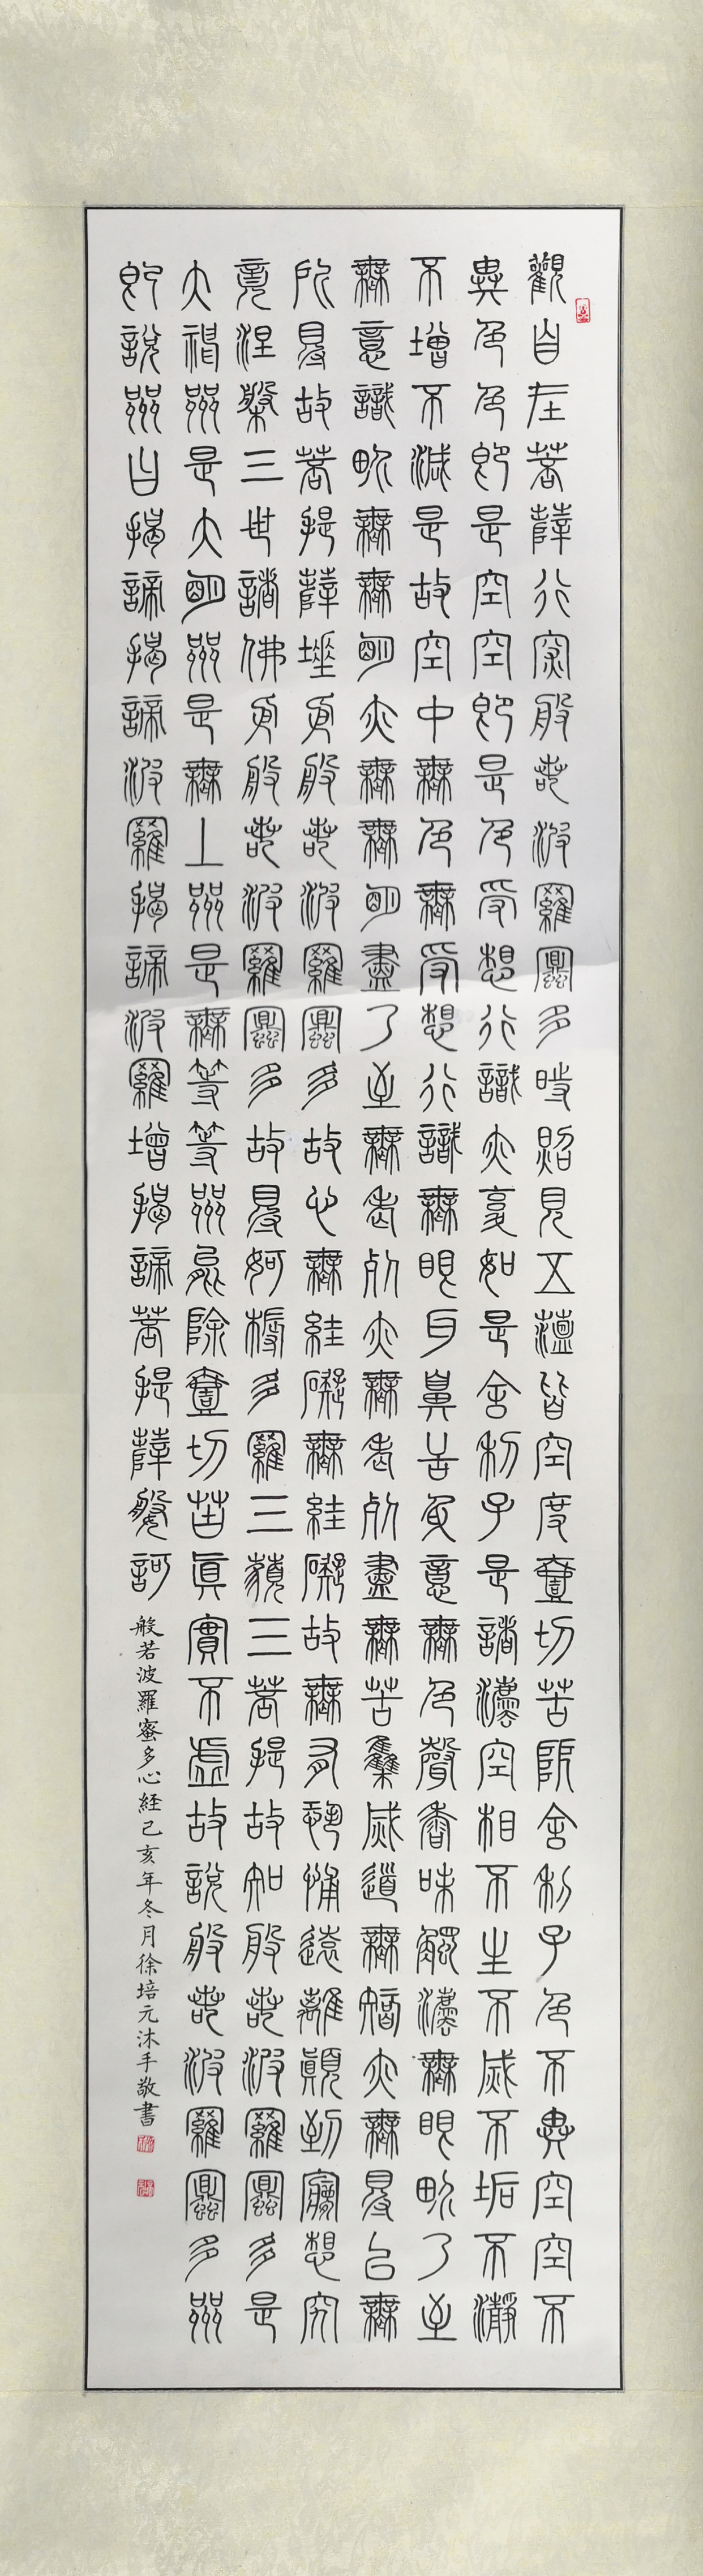 觀自在菩薩行深般若波羅蜜多時照見五蘊皆空度壹切苦厄舍利子色不異空空不
異色色即是空空即是色受想行識亦復如是舍利子是諸法空相不生不滅不垢不淨
不增不減是故空中無色無受想行識無眼耳鼻舌身意無色聲香味觸法無眼界乃至
無意識界無無明亦無無明盡乃至無老死亦無老死盡無苦集滅道無智亦無得以無
所得故菩提薩埵依般若波羅蜜多故心無絓礙無絓礙故無有恐怖遠離顛倒夢想究
竟涅槃三世諸佛依般若波羅蜜多故得阿耨多羅三藐三菩提故知般若波羅蜜多是
大神咒是大明咒是無上咒是無等等咒能除壹切苦真實不虛故說般若波羅蜜多咒
即說咒曰揭諦揭諦波羅揭諦波羅增揭諦菩提薩婆訶
般若波羅蜜多心経己亥年冬月徐培元沐手敬書